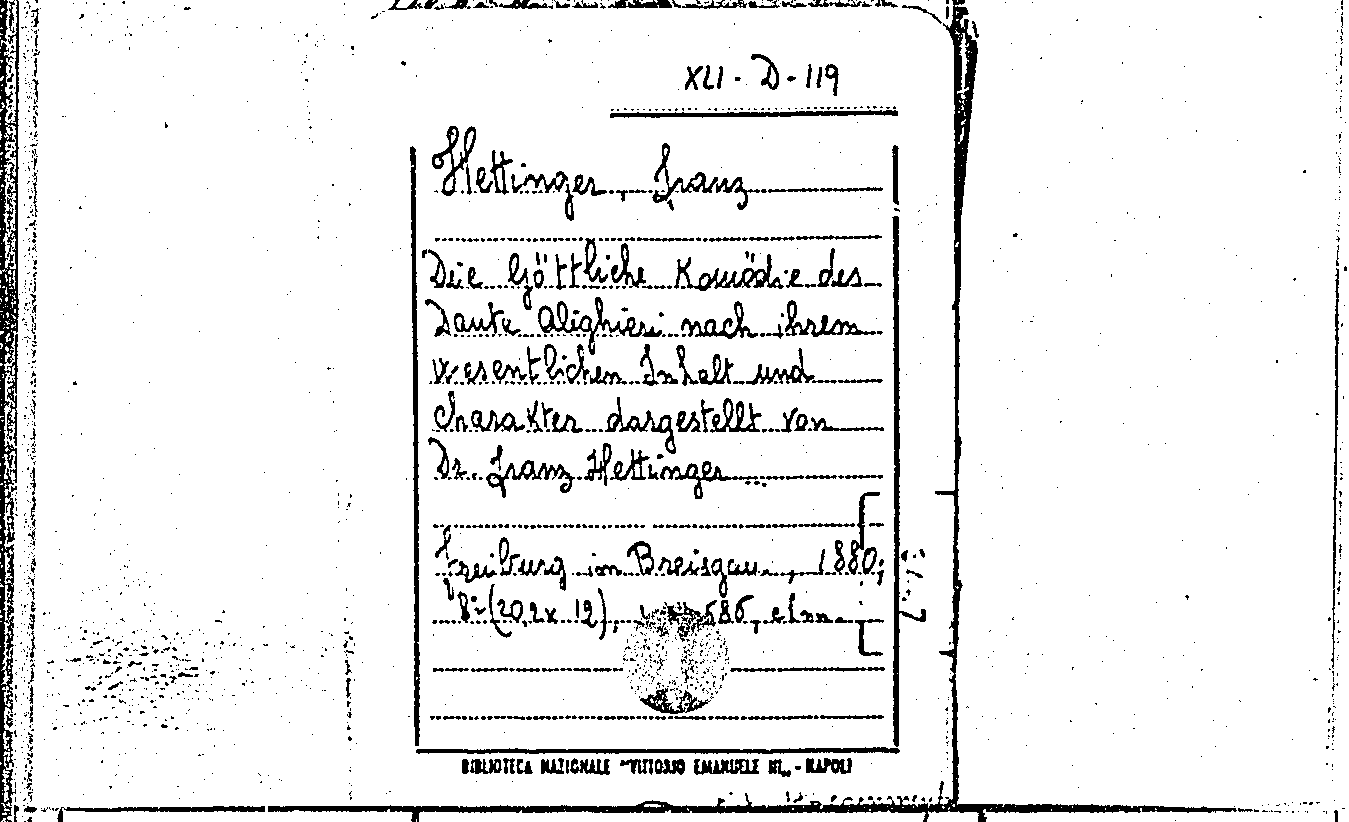 XLI - D - 119
Hettinger, Franz
Die Göttliche Komödie des
Dante Alighieri nach ihrem
wesentlichen Inhalt und
Charakter dargestellt von
Dr. Franz Hettinger ...
Freiburg im Breisgau., 1880;
8º (20,2 x 12), 586, cLnn.
BIBLIOTECA NAZIONALE "VITTORIO EMANUELE III„ - NAPOLI